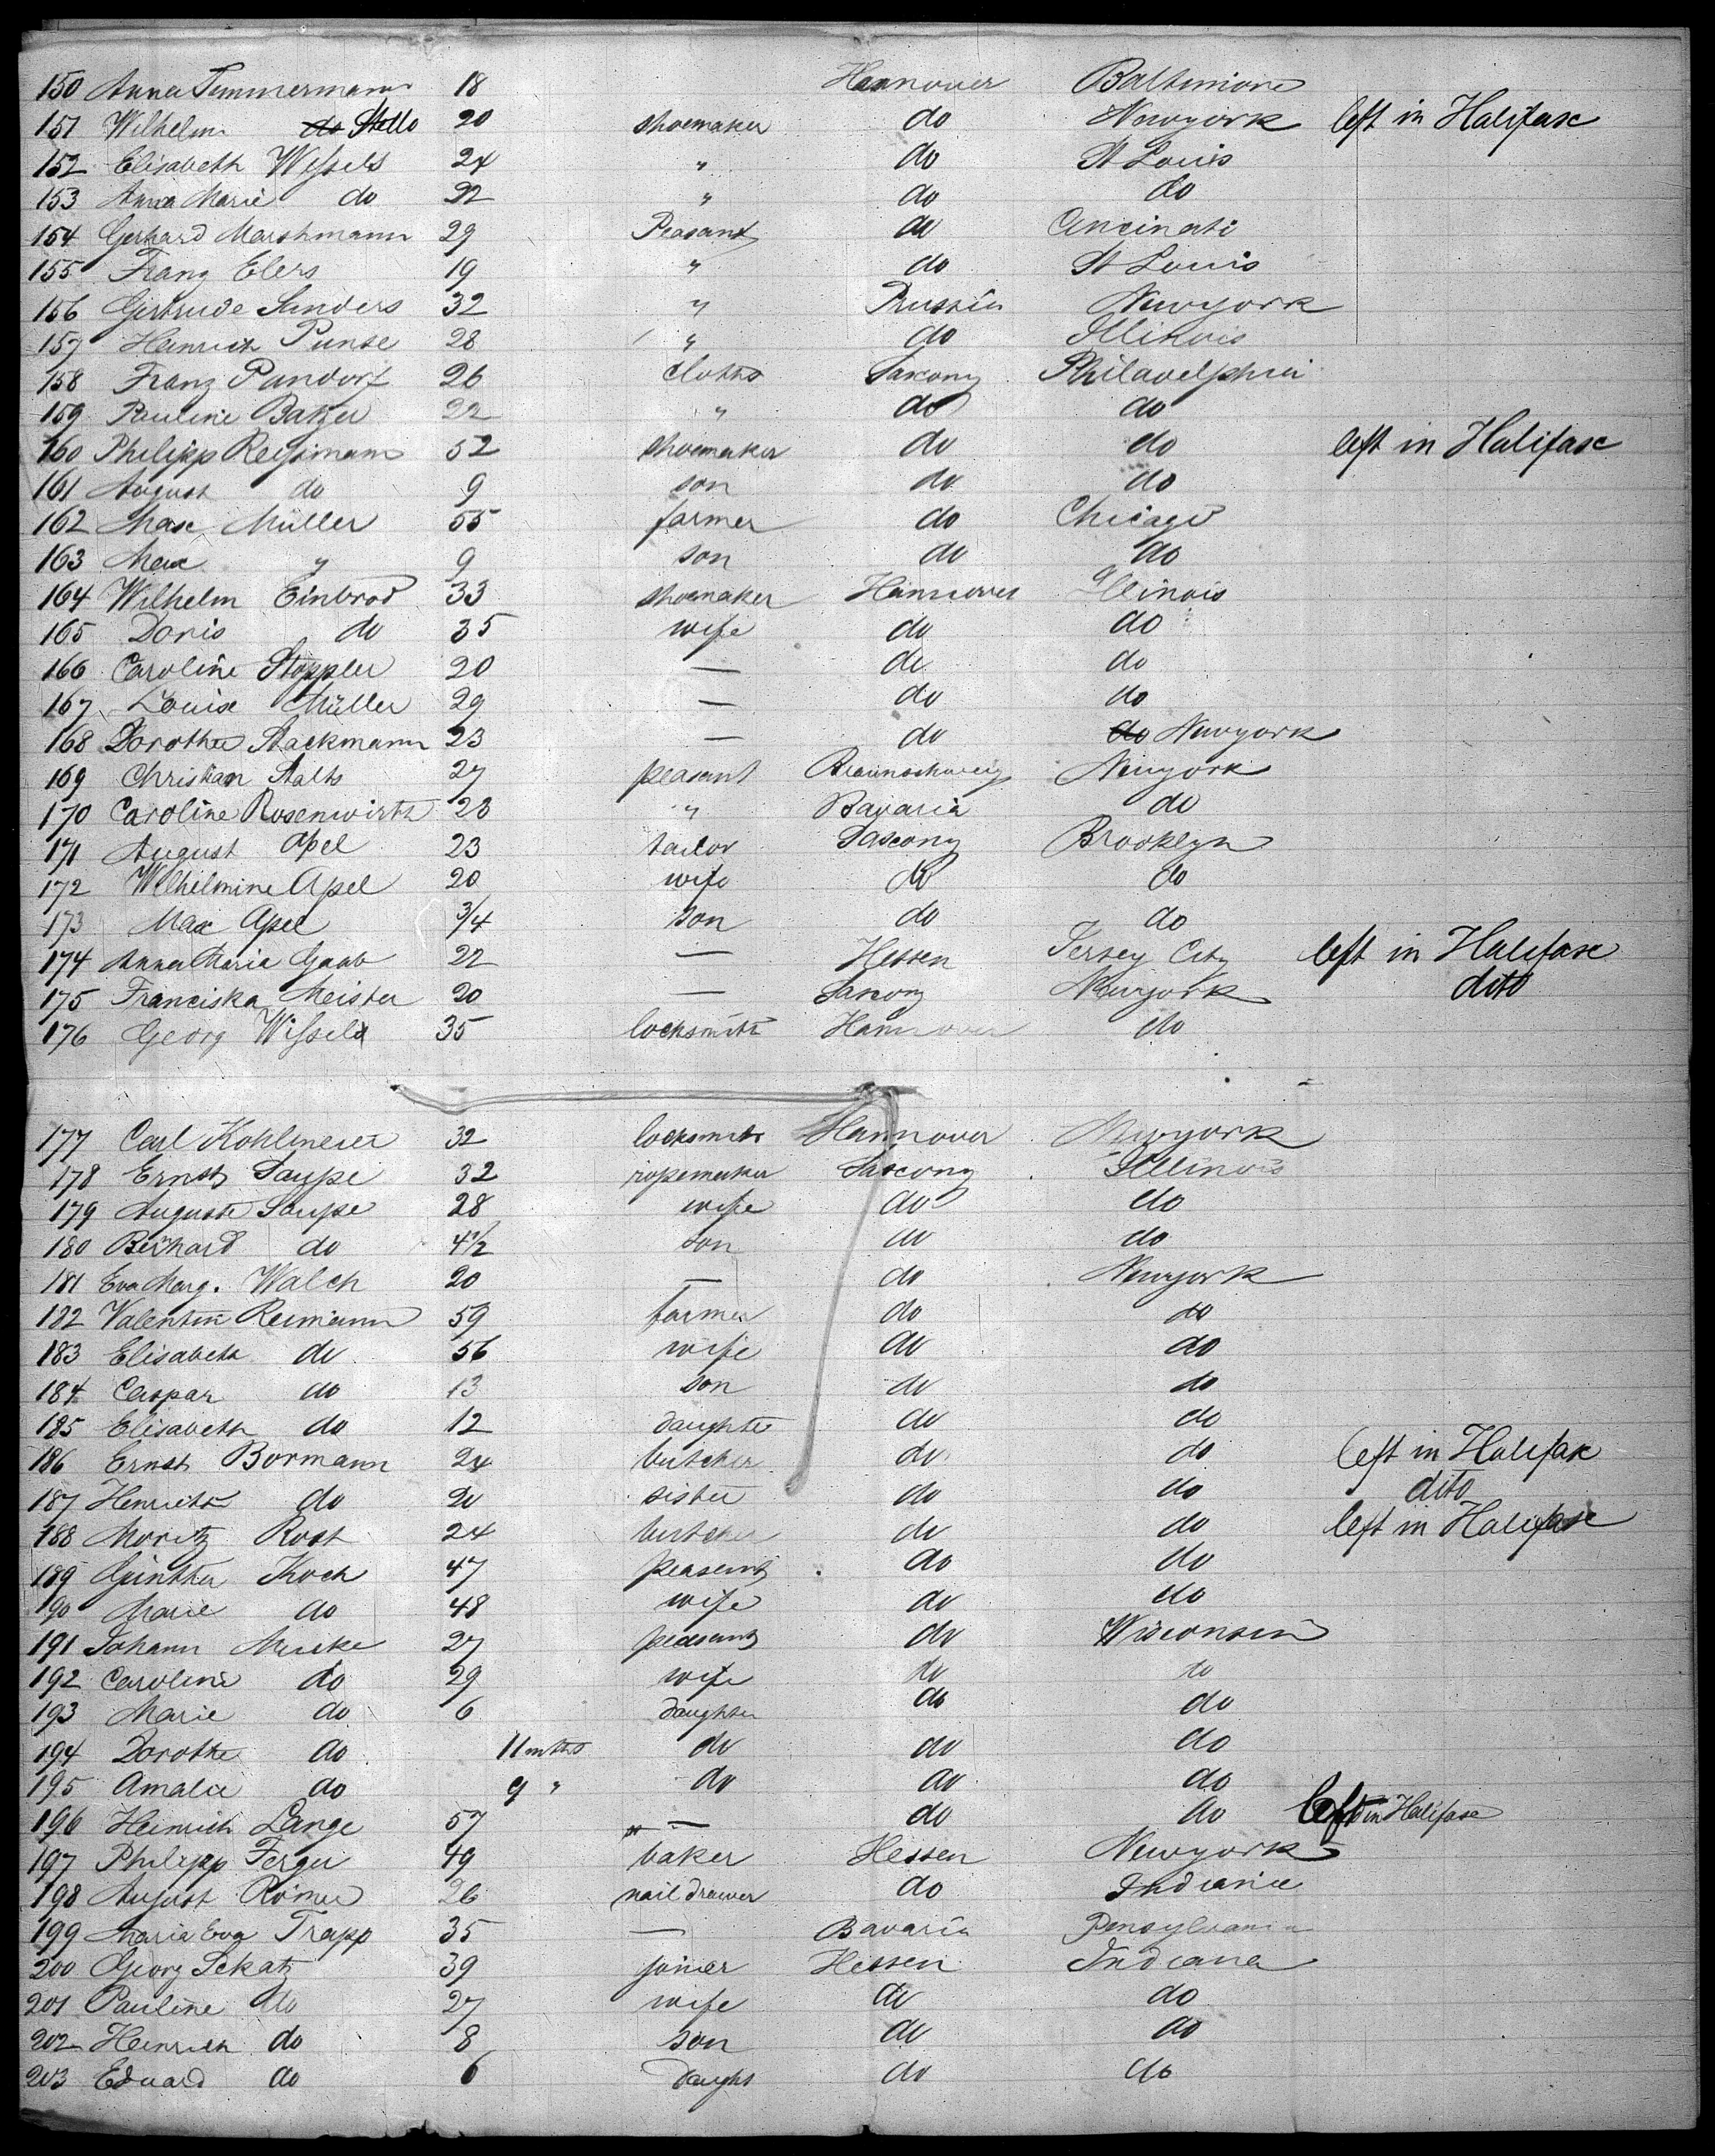 150 Anna Timmermann 18 Hannover Baltimore
151 Wilhelm do Stello 20 shoemaker do Newyork left in Halifax
152 Elisabeth Wessels 24 " do St Louis
153 Anna Marie do 22 " do do
154 Gerhard Marshmann 29 Peasant do Cincinati
155 Franz Elers 19 " do St Louis
156 Gertrude Sanders 32 " Prussia Newyork
157 Heinrich Punse 28 " do Illinois
158 Franz Pandorf 26 cloths Saxony Philadelphia
159 Pauline Batzer 22 " do do
160 Philipp Reissmann 52 shoemaker do do left in Halifax
161 August do 9 son do do
162 Max Müller 55 farmer do Chicago
163 Max " 9 son do do
164 Wilhelm Einbrod 33 shoemaker Hannover Illinois
165 Doris do 35 wife do do
166 Caroline Stöppler 20 — do do
167 Louise Müller 29 — do do
168 Dorothee Stackmann 23 — do do Newyork
169 Christian Stalts 27 peasant Braunschweig Newyork
170 Caroline Rosenwirth 28 " Bavaria do
171 August Apel 23 tailor Saxony Brooklyn
172 Wilhelmine Apel 20 wife do do
173 Max Apel 3/4 son do do
174 Anna Maria Gaab 22 — Hessen Jersey City left in Halifax
175 Franciska Meister 20 — Saxony Newyork dito
176 Georg Wessels 35 locksmith Hannover do
177 Carl Kohlmeier 32 locksmith Hannover Newyork
178 Ernst Saupe 32 ropemaker Saxony Illinois
179 Auguste Saupe 28 wife do do
180 Berhard do 4 1/2 son do do
181 Eva Marg. Walch 20 — do Newyork
182 Valentin Reimann 59 farmer do do
183 Elisabeth do 56 wife do do
184 Caspar do 13 son do do
185 Elisabeth do 12 daughte do do
186 Ernst Bormann 24 butcher do do left in Halifax
187 Henriette do 20 sister do do dito
188 Moritz Rost 24 butcher do do left in Halifax
189 Günther Koch 47 peasant do do
190 Marie do 48 wife do do
191 Johann Mucke 27 peasant do Wisconsin
192 Caroline do 29 wife do do
193 Marie do 6 daughter do do
194 Dorothe do 11 mths do do do
195 Amalie do 9 " do do do
196 Heinrich Lange 57 — do do left in Halifax
197 Philipp Ferger 49 baker Hessen Newyork
198 August Römer 26 nail drawer do Indiana
199 Maria Eva Trapp 35 — Bavaria Pensylvania
200 Georg Schatz 39 joiner Hessen Indiana
201 Pauline do 27 wife do do
202 Heinrich do 8 son do do
203 Eduard do 6 daught do do